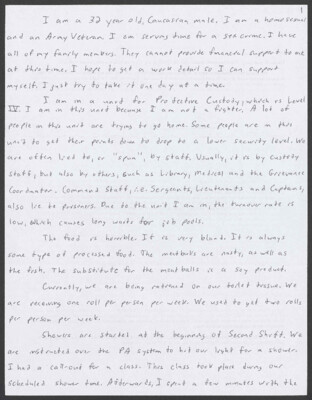 1
I am a 33 year old, Caucasian male. I am a homosexual
and an Army Veteran. I am serving time for a sex crime. I have
all of my family members. They cannot provide financial support to me
at this time. I hope to get a work detail so I can support
myself. I just try to take it one day at a time.
I am in a unit for Protective Custody, which is Level
IV. I am in this unit because I am not a fighter. A lot of
people in this unit are trying to go home. Some people are in this
unit to get their points down to drop to a lower security level. We
are often lied to, or "spun", by staff. Usually, it is by custody
staff, but also by others, such as Library, Medical and the Grievance
Coordinator. Command Staff, i.e. Sergeants, Lieutenants and Captains,
also lie to prisoners. Due to the unit I am in, the turnover rate is
low, which causes long waits for job pools.
The food is horrible. It is very bland. It is always
some type of processed food. The meatballs are nasty, as well as
the fish. The substitute for the meatballs is a soy product.
Currently, we are being rationed on our toilet tissue. We
are receiving one roll per person per week. We used to get two rolls
per person per week.
Showers are started at the beginning of Second Shift. We
are instructed over the PA system to hit our light for a shower.
I had a call-out for a class. This class took place during our
scheduled shower time. Afterwards, I spent a few minutes with the